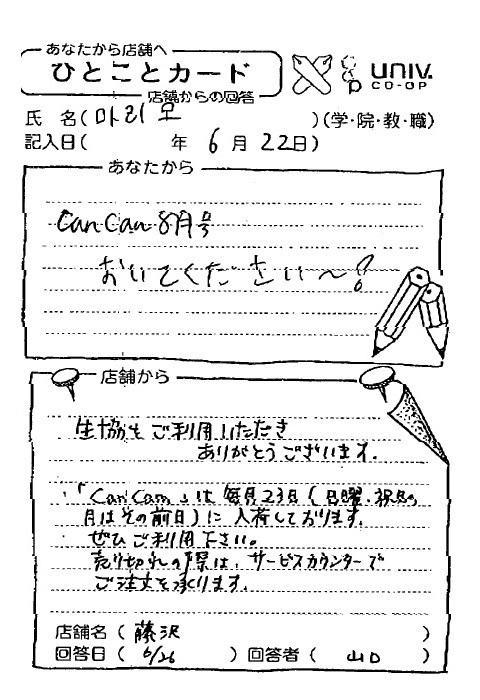 あなたから店舗へ
ひとことカード
店舗からの回答
univ.
CO-OP
氏 名( 마리모 )(学・院・教・職)
記入日( 年 6 月 22日)
あなたから
CanCan 8月号
おいてください〜!
店舗から
生協をご利用いただき
ありがとうございます.
「CanCam」は毎月23日(日曜、祝日の
月はその前日)に入荷しております.
ぜひご利用下さい。
売り切れの際は、サービスカウンターで
ご注文を承ります.
店舗名( 藤沢 )
回答日( 6/26 )回答者( 山口 )